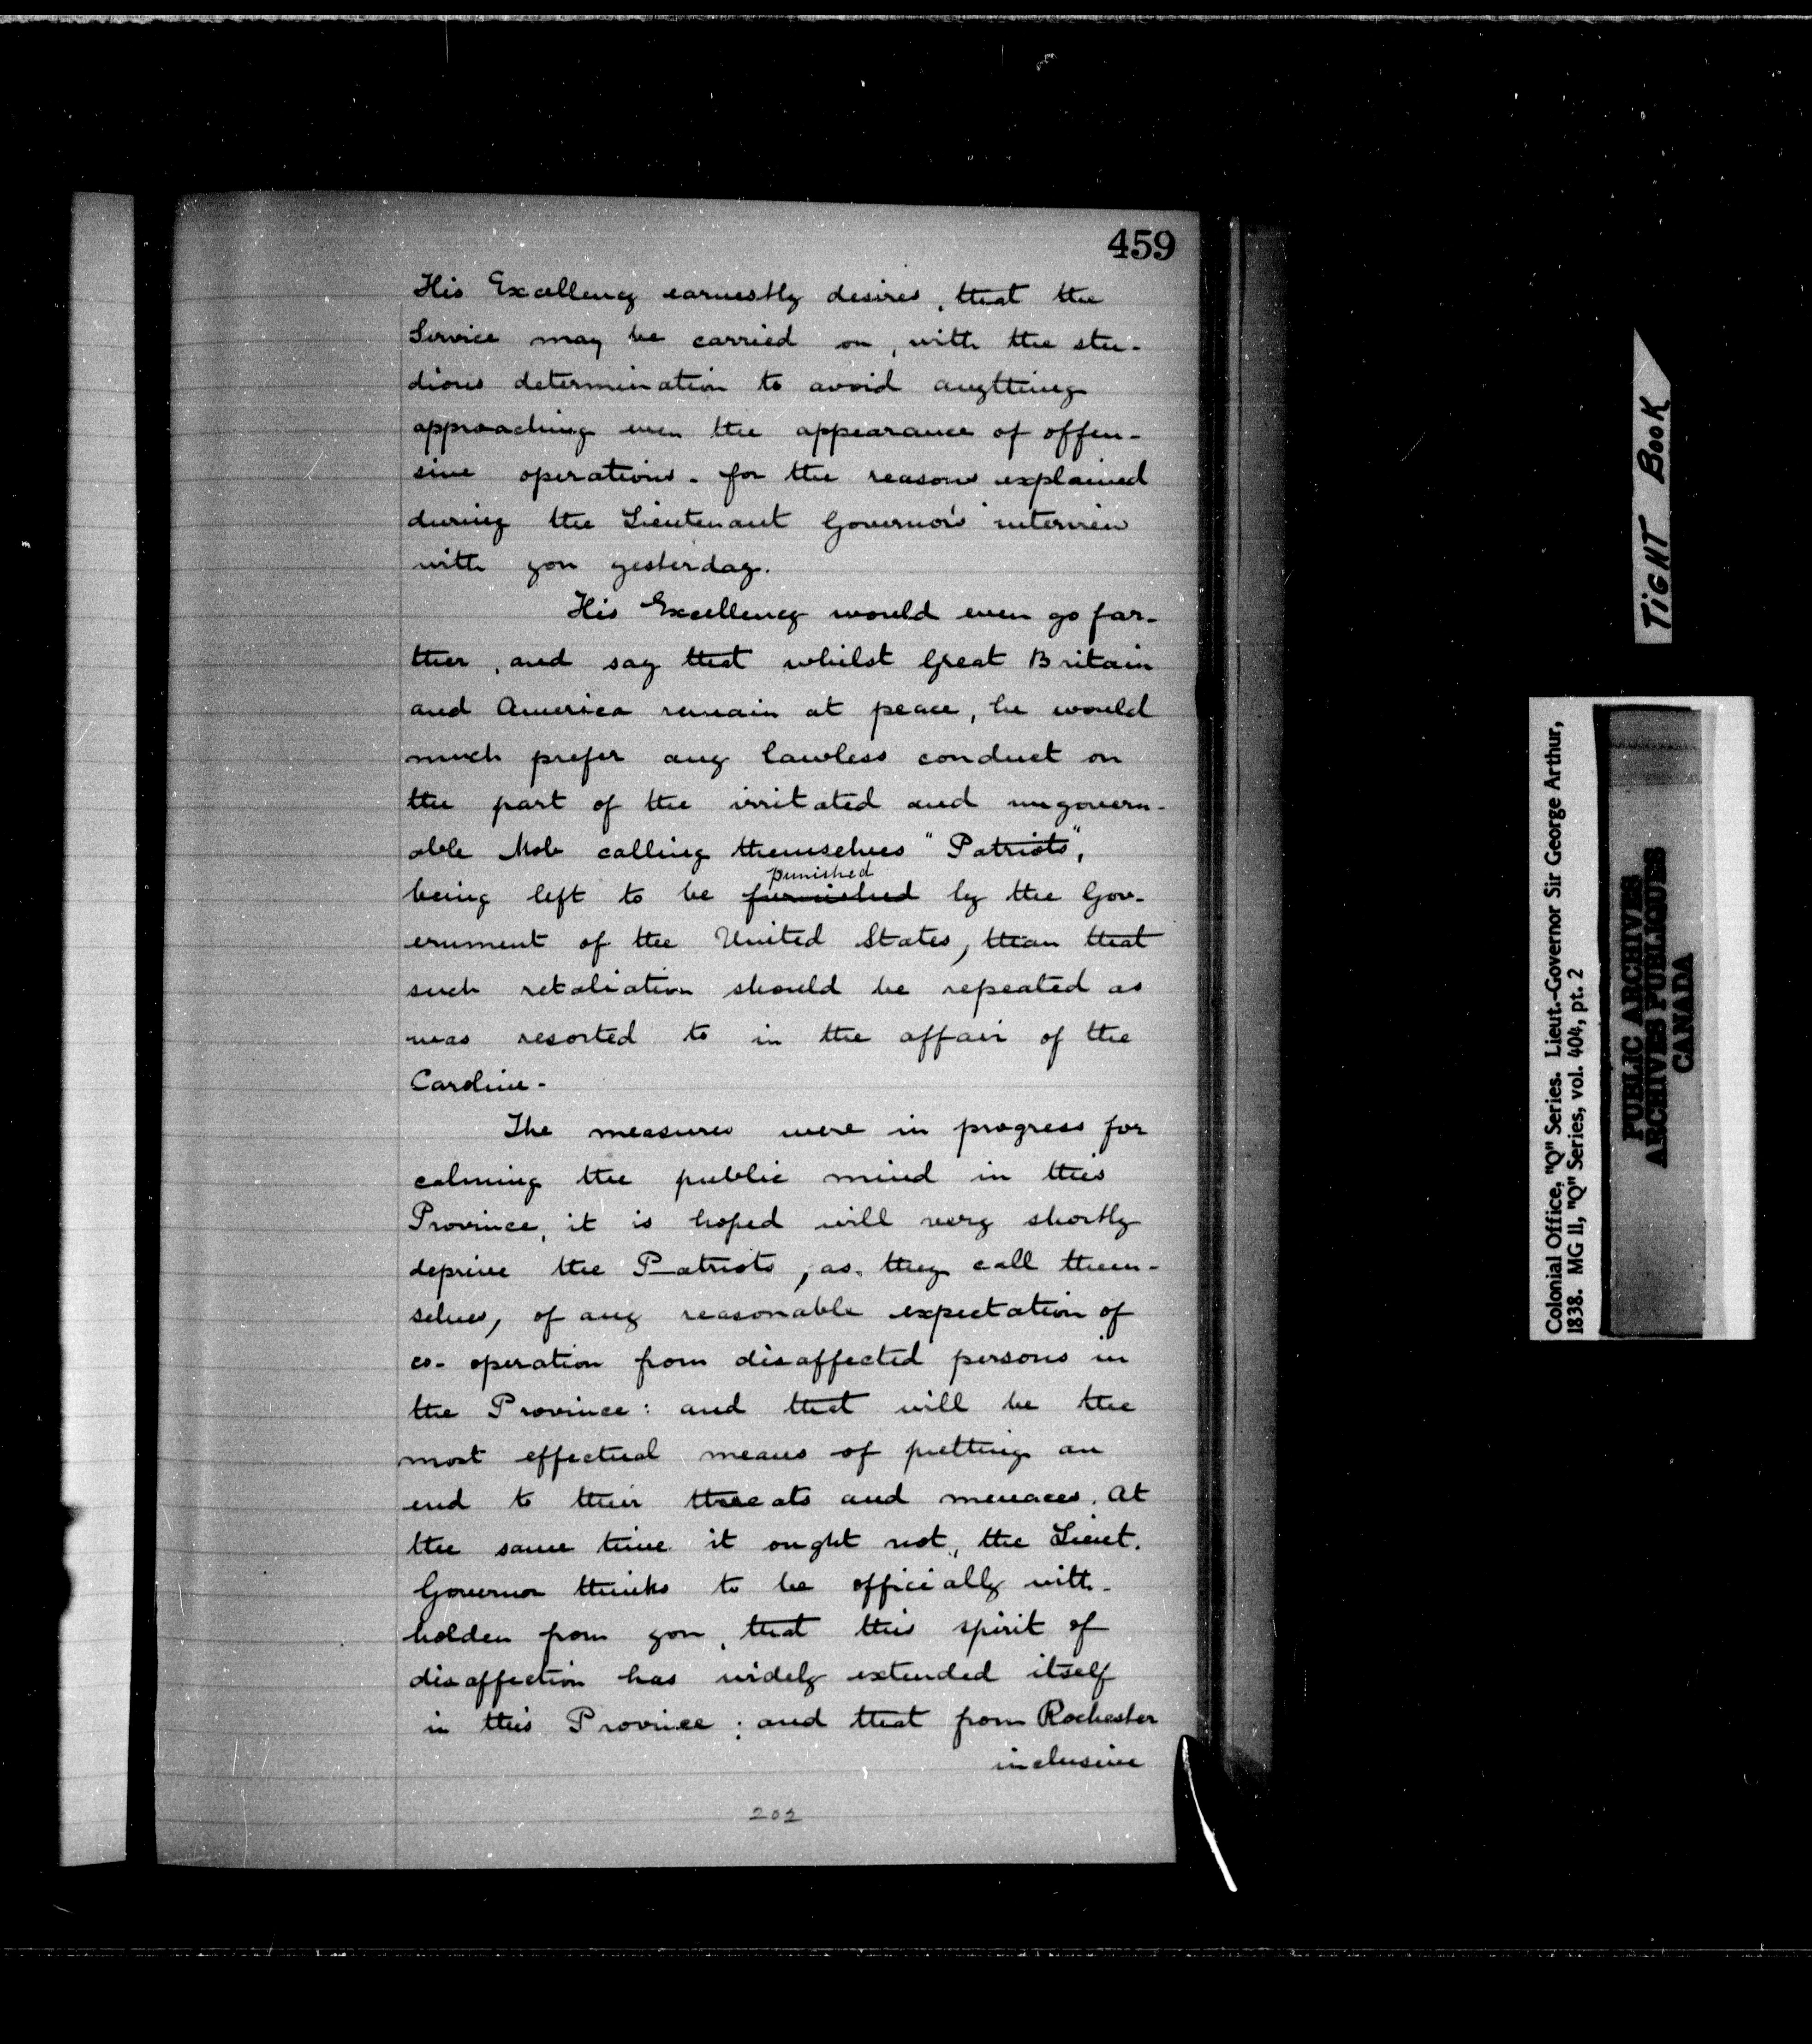 459
His Excellency earnestly desires, that the
Service may be carried on, with the stu-
dious determination to avoid anything
approaching even the appearance of offen-
sive operations. for the reasons explained
during the Lieutenant Governor's interview
with you yesterday.
His Excellency would even go far-
ther, and say that whilst Great Britain
and America remain at peace, he would
much prefer any lawless conduct on
the part of the irritated and ungovern-
able Mob calling themselves "Patriots",
punished
being left to be furnished by the Gov-
ernment of the United States, than that
such retaliation should be repeated as
was resorted to in the affair of the
Caroline-
The measures were in progress for
calming the public mind in this
Province, it is hoped will very shortly
deprive the Patriots, as, they call them-
selves, of any reasonable expectation of
co-operation from disaffected persons in
the Province: and that will be the
most effectual means of putting an
end to their threats and menaces. At
the same time it ought not, the Lieut.
Governor thinks to be officially with-
holden from you, that this spirit of
disaffection has widely extended itself
in this Province; and that from Rochester
inclusive
202
TIGHT BOOK
Colonial Office, "Q" Series. Lieut.-Governor Sir George Arthur,
1838. MG 11, "Q" Series, vol. 404, pt. 2
PUBLIC ARCHIVES
ARCHIVES PUBLIQUES
CANADA